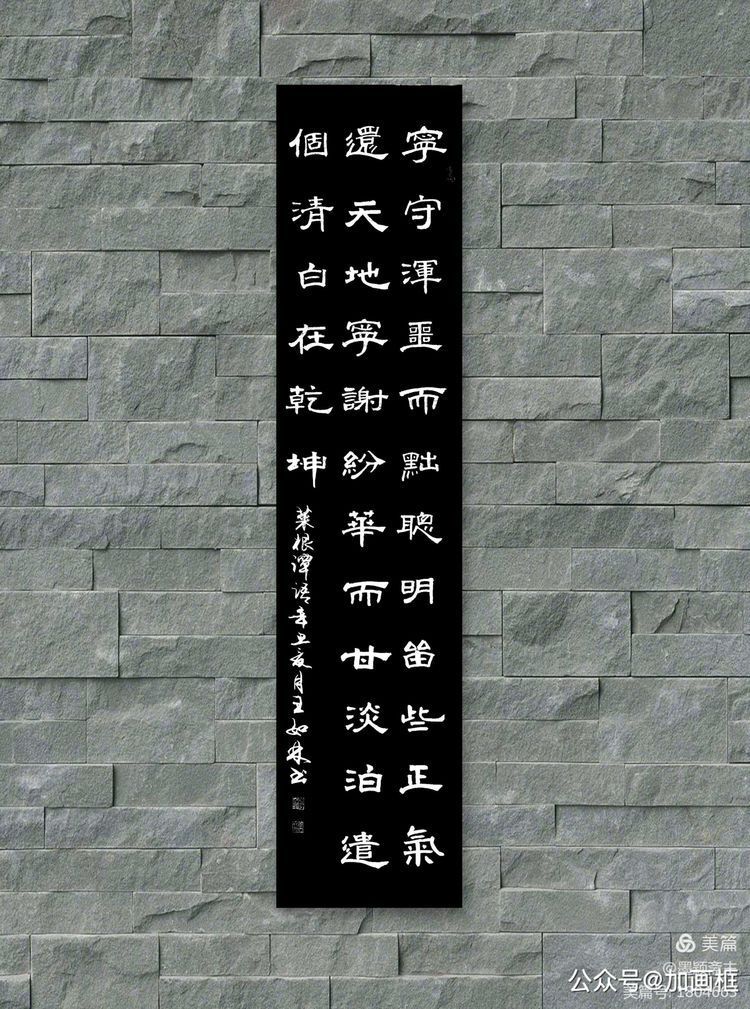 寧守渾噩而黜聰明留些正氣
還天地寧謝紛華而甘淡泊遣
個清白在乾坤
菜根譚語辛丑夏月王如林書
美篇
公众号@加画框